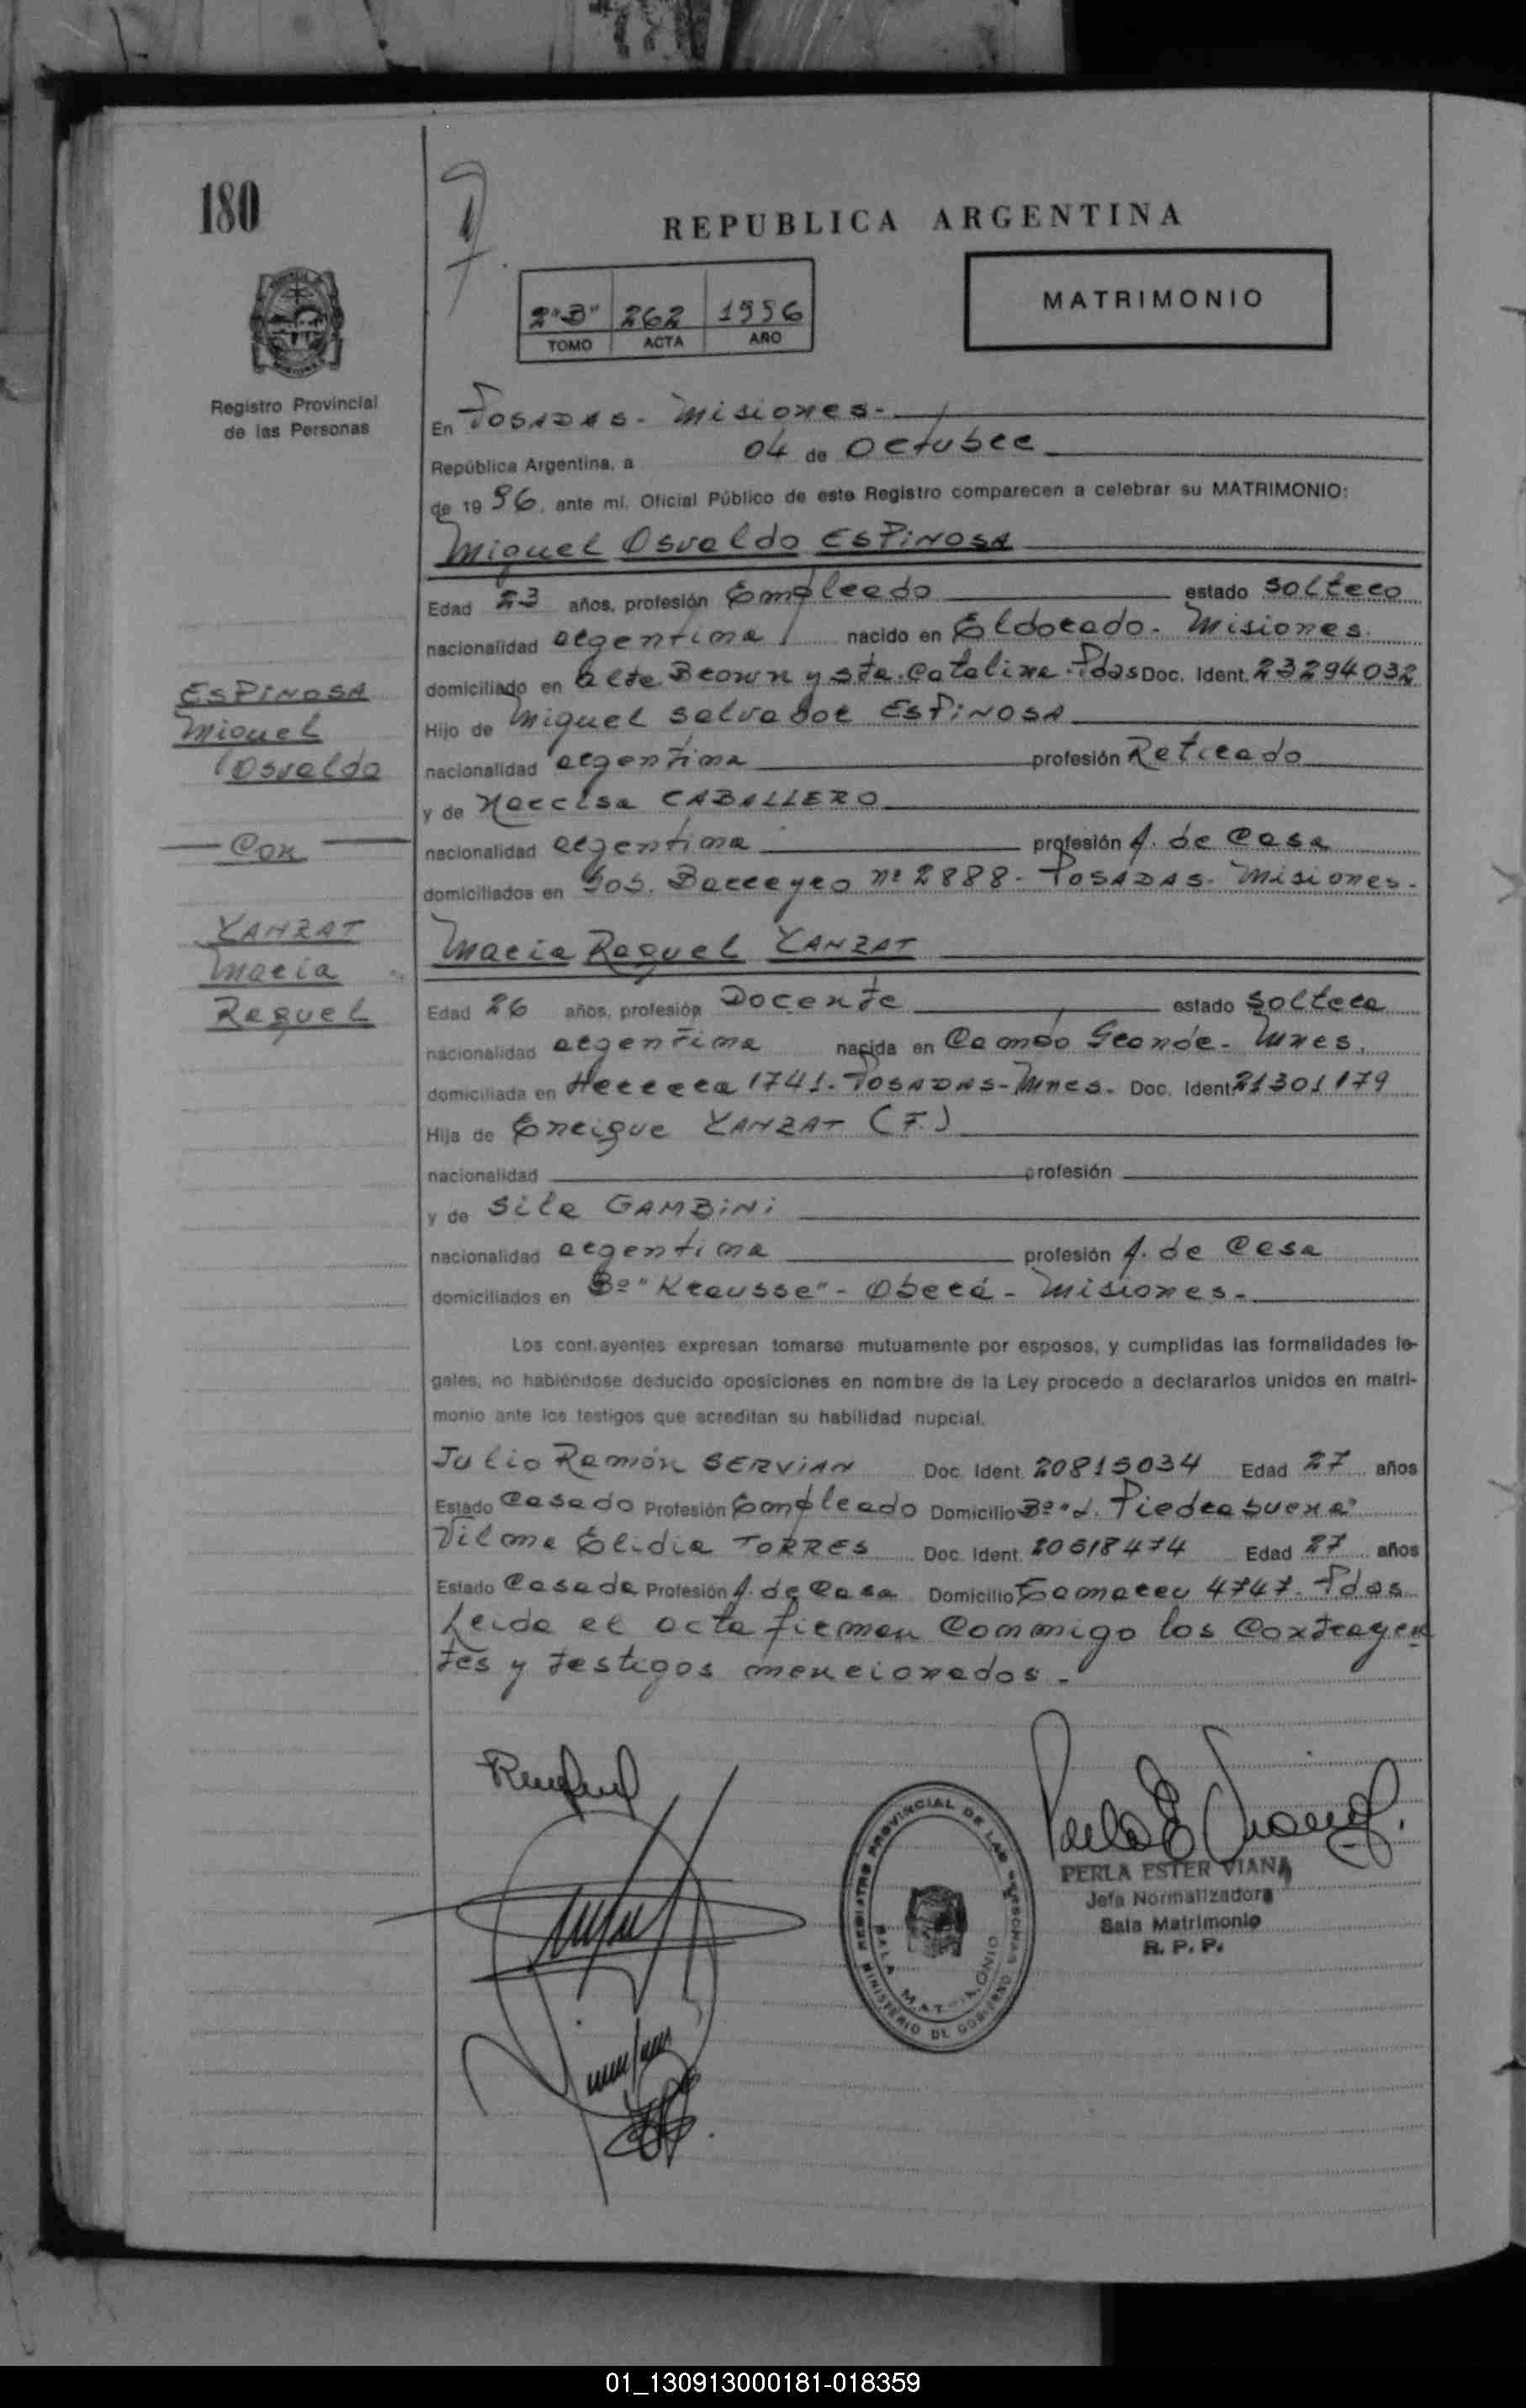 180
REPUBLICA ARGENTINA
2"B" 262 1996
TOMO ACTA AÑO
MATRIMONIO
Registro Provincial
de las Personas
En Posadas - Misiones -
República Argentina, a 04 de Octubre
de 1996, ante mí, Oficial Público de este Registro comparecen a celebrar su MATRIMONIO:
Miguel Osvaldo ESPINOSA
Edad 23 años, profesión Empleado estado soltero
nacionalidad argentina nacido en Eldorado - Misiones.
domiciliado en Alte. Brown y Sta. Catalina - Pdas Doc. Ident. 23294032
Hijo de Miguel Salvador ESPINOSA
nacionalidad argentina profesión Retirado
y de Narcisa CABALLERO
nacionalidad argentina profesión A. de Casa
domiciliados en Jos. Barreyro nº 2888 - POSADAS - Misiones -
ESPINOSA
Miguel
Osvaldo
Con
YANZAT
Maria
Raquel
Maria Raquel YANZAT
Edad 26 años, profesión Docente estado soltera
nacionalidad argentina nacida en Campo Grande - Mnes.
domiciliada en Herrera 1741 - POSADAS - Mnes. Doc. Ident. 21301179
Hija de Enrique YANZAT (F.)
nacionalidad profesión
y de Sila GAMBINI
nacionalidad argentina profesión A. de Casa
domiciliados en Bº "Krausse" - Oberá - Misiones -
Los cont.ayentes expresan tomarse mutuamente por esposos, y cumplidas las formalidades le-
gales, no habiéndose deducido oposiciones en nombre de la Ley procedo a declararlos unidos en matri-
monio ante los testigos que acreditan su habilidad nupcial.
Julio Ramón SERVIAN Doc. Ident. 20815034 Edad 27 años
Estado Casado Profesión Empleado Domicilio Bº "L. Piedrabuena"
Vilma Elidia TORRES Doc. Ident. 20518474 Edad 27 años
Estado Casada Profesión A. de Casa Domicilio 4747 - Pdas
Leida el acta firman conmigo los contrayen
tes y testigos mencionados -
REGISTRO PROVINCIAL DE LAS PERSONAS
SALA MATRIMONIO
MINISTERIO DE GOBIERNO
PERLA ESTER VIANA
Jefa Normalizadora
Sala Matrimonio
R. P. P.
01_130913000181-018359